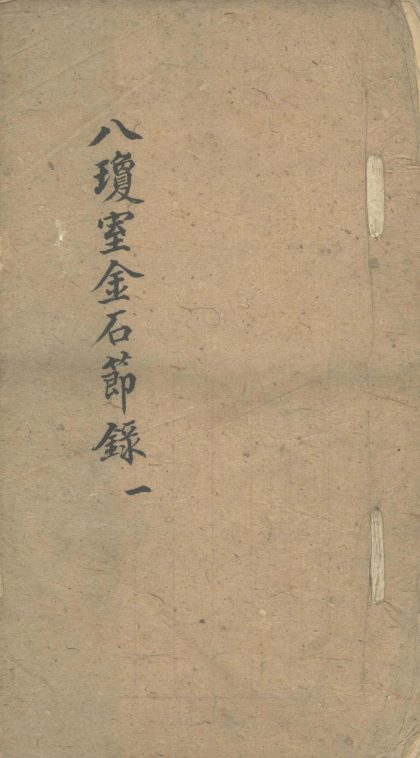 八瓊室金石節錄 一